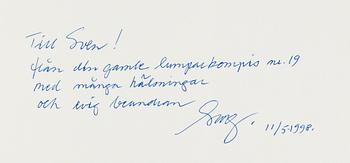 Till Sven!
från den gamle lumparkompis nr. 19
med många hälsningar
och evig beundran
11/5-1998.